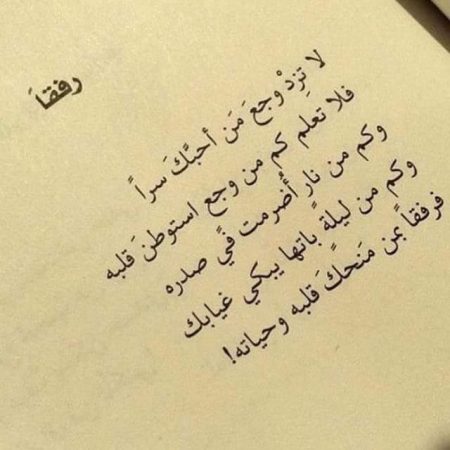 رفقاً
لا تزِدْ وجعَ مَن أحبَّكَ سراً
فلا تعلم كم من وجع استوطنَ قلبه
وكم من نار أُضرمت في صدره
وكم من ليلةً باتها يبكي غيابك
فرفقاً بمن مَنحكَ قلبه وحياته!